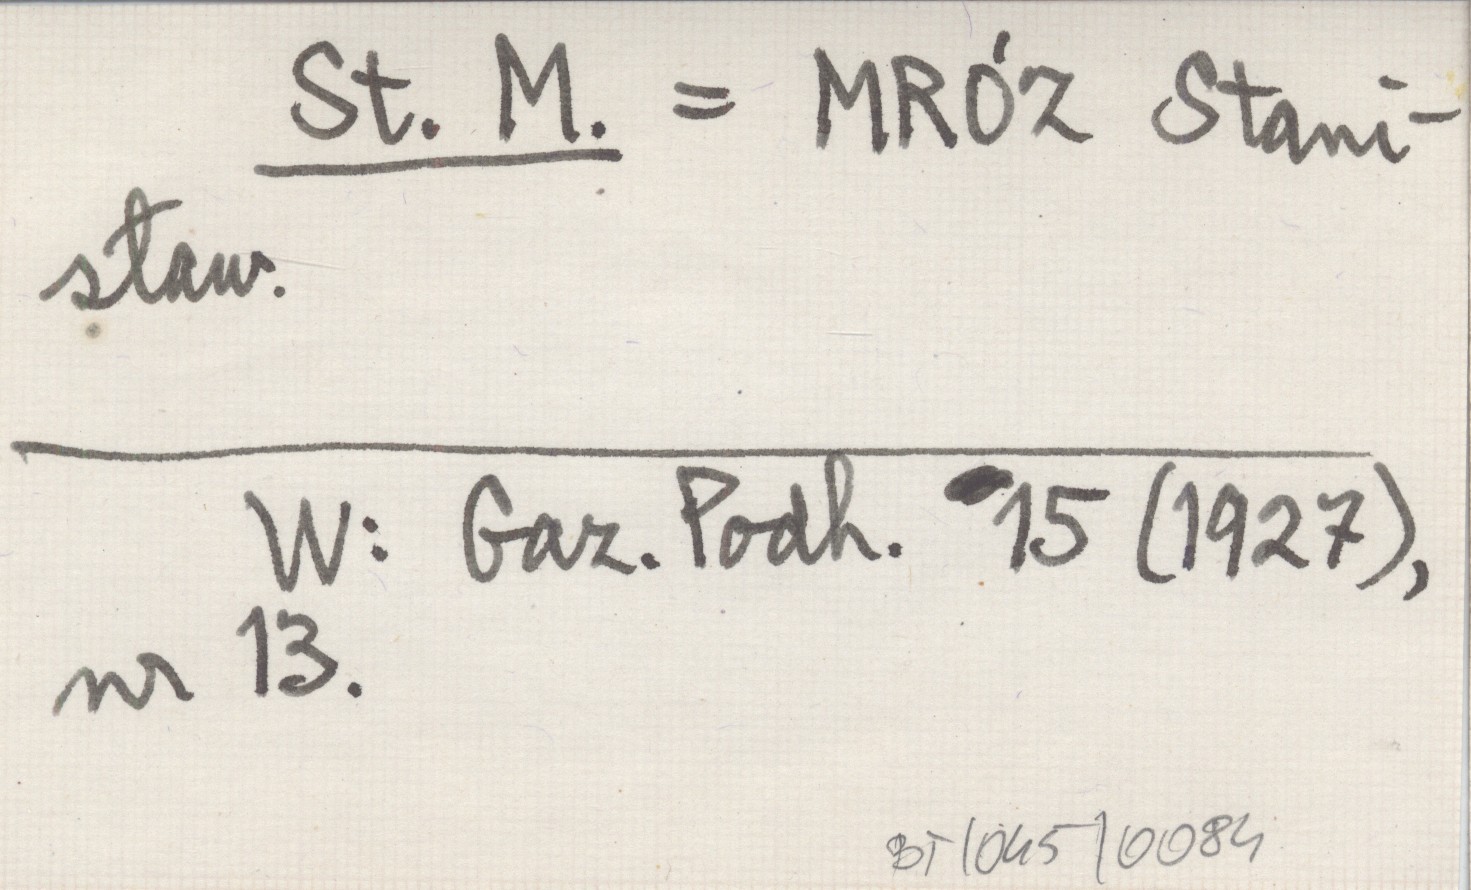 St. M. = MRÓZ Stani-
sław.
W: Gaz. Podh. 15 (1927),
nr 13.
BT/045/0084